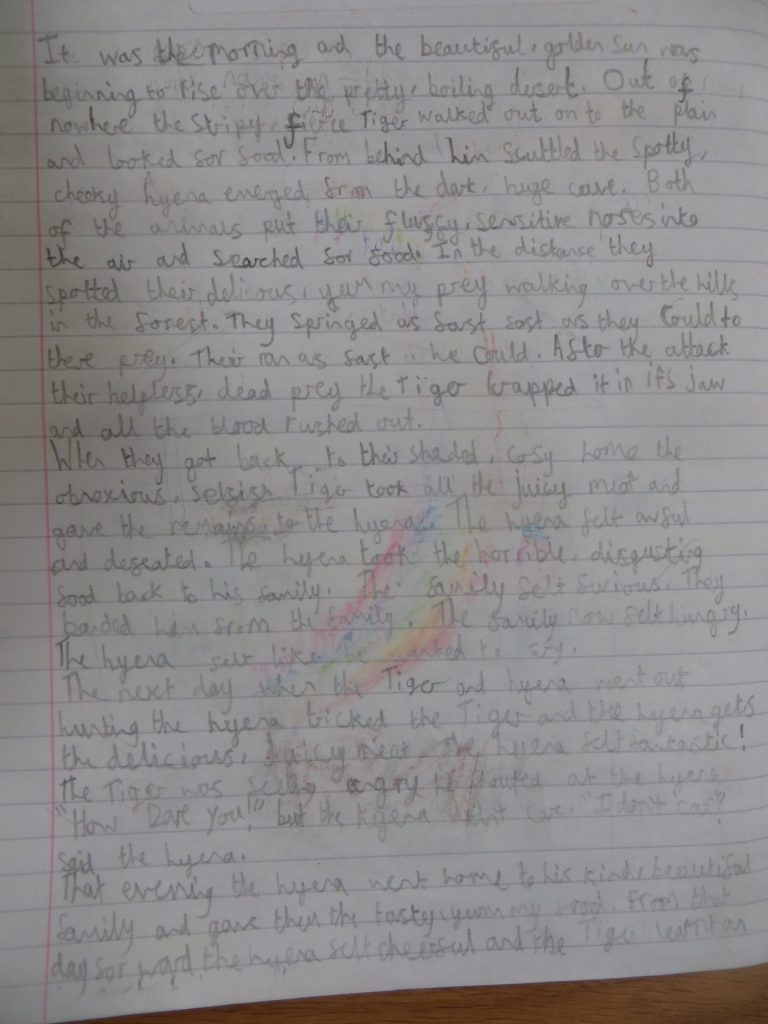 It was the morning and the beautiful, golden sun was
beginning to rise over the pretty, boiling desert. Out of
nowhere the stripy, fierce Tiger walked out on to the plain
and looked for food. From behind him scuttled the spotty,
cheeky hyena emerged from the dark, huge cave. Both
of the animals put their fluffy, sensitive noses into
the air and searched for food. In the distance they
spotted their delicous, yummy prey walking over the hills
in the forest. They springed as fast fast as they could to
there prey. Their ran as fast a he could. After the attack
their helpless, dead prey the Tiger wrapped it in it's jaw
and all the blood rushed out.
When they got back to their shaded, cosy home the
obnoxious, selfish Tiger took all the juicy meat and
gave the remains to the hyena. The hyena felt awful
and defeated. The hyena took the horrible, disgusting
food back to his family. The family felt furious. They
banded him from the family. The family now felt hungry.
The hyena felt like he wanted to cry.
The next day when the Tiger and hyena went out
hunting the hyena tricked the Tiger and the hyena gets
the delicious, juicy meat. The hyena felt fantastic!
The Tiger was angry he shouted at the hyena
"How Dare You!" but the hyena didn't care. "I don't care"
said the hyena.
That evening the hyena went home to his kind, beautiful
family and gave them the tasty, yummy food. From that
day for ward the hyena felt cheerful and the Tiger learnt an